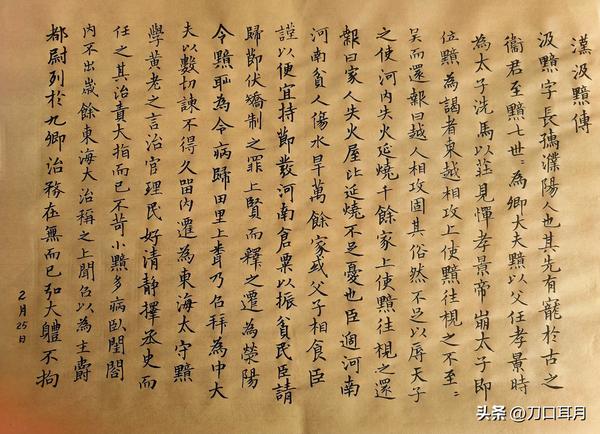 漢汲黯傳
汲黯字長孺濮陽人也其先有寵於古之
衞君至黯七世〻為卿大夫黯以父任孝景時
為太子洗馬以莊見憚孝景帝崩太子即
位黯為謁者東越相攻上使黯往視之不至〻
吴而還報曰越人相攻固其俗然不足以辱天子
之使河内失火延燒千餘家上使黯往視之還
報曰家人失火屋比延燒不足憂也臣過河南
河南貧人傷水旱萬餘家或父子相食臣
謹以便宜持節發河南倉粟以振貧民臣請
歸節伏矯制之罪上賢而釋之遷為滎陽
令黯恥為令病歸田里上聞乃召拜為中大
夫以數切諫不得久留内遷為東海太守黯
學黄老之言治官理民好清静擇丞史而
任之其治責大指而已不苛小黯多病臥閨閤
内不出歲餘東海大治稱之上聞召以為主爵
都尉列於九卿治務在無而已弘大體不拘
2月25日
头条 @刀口耳月